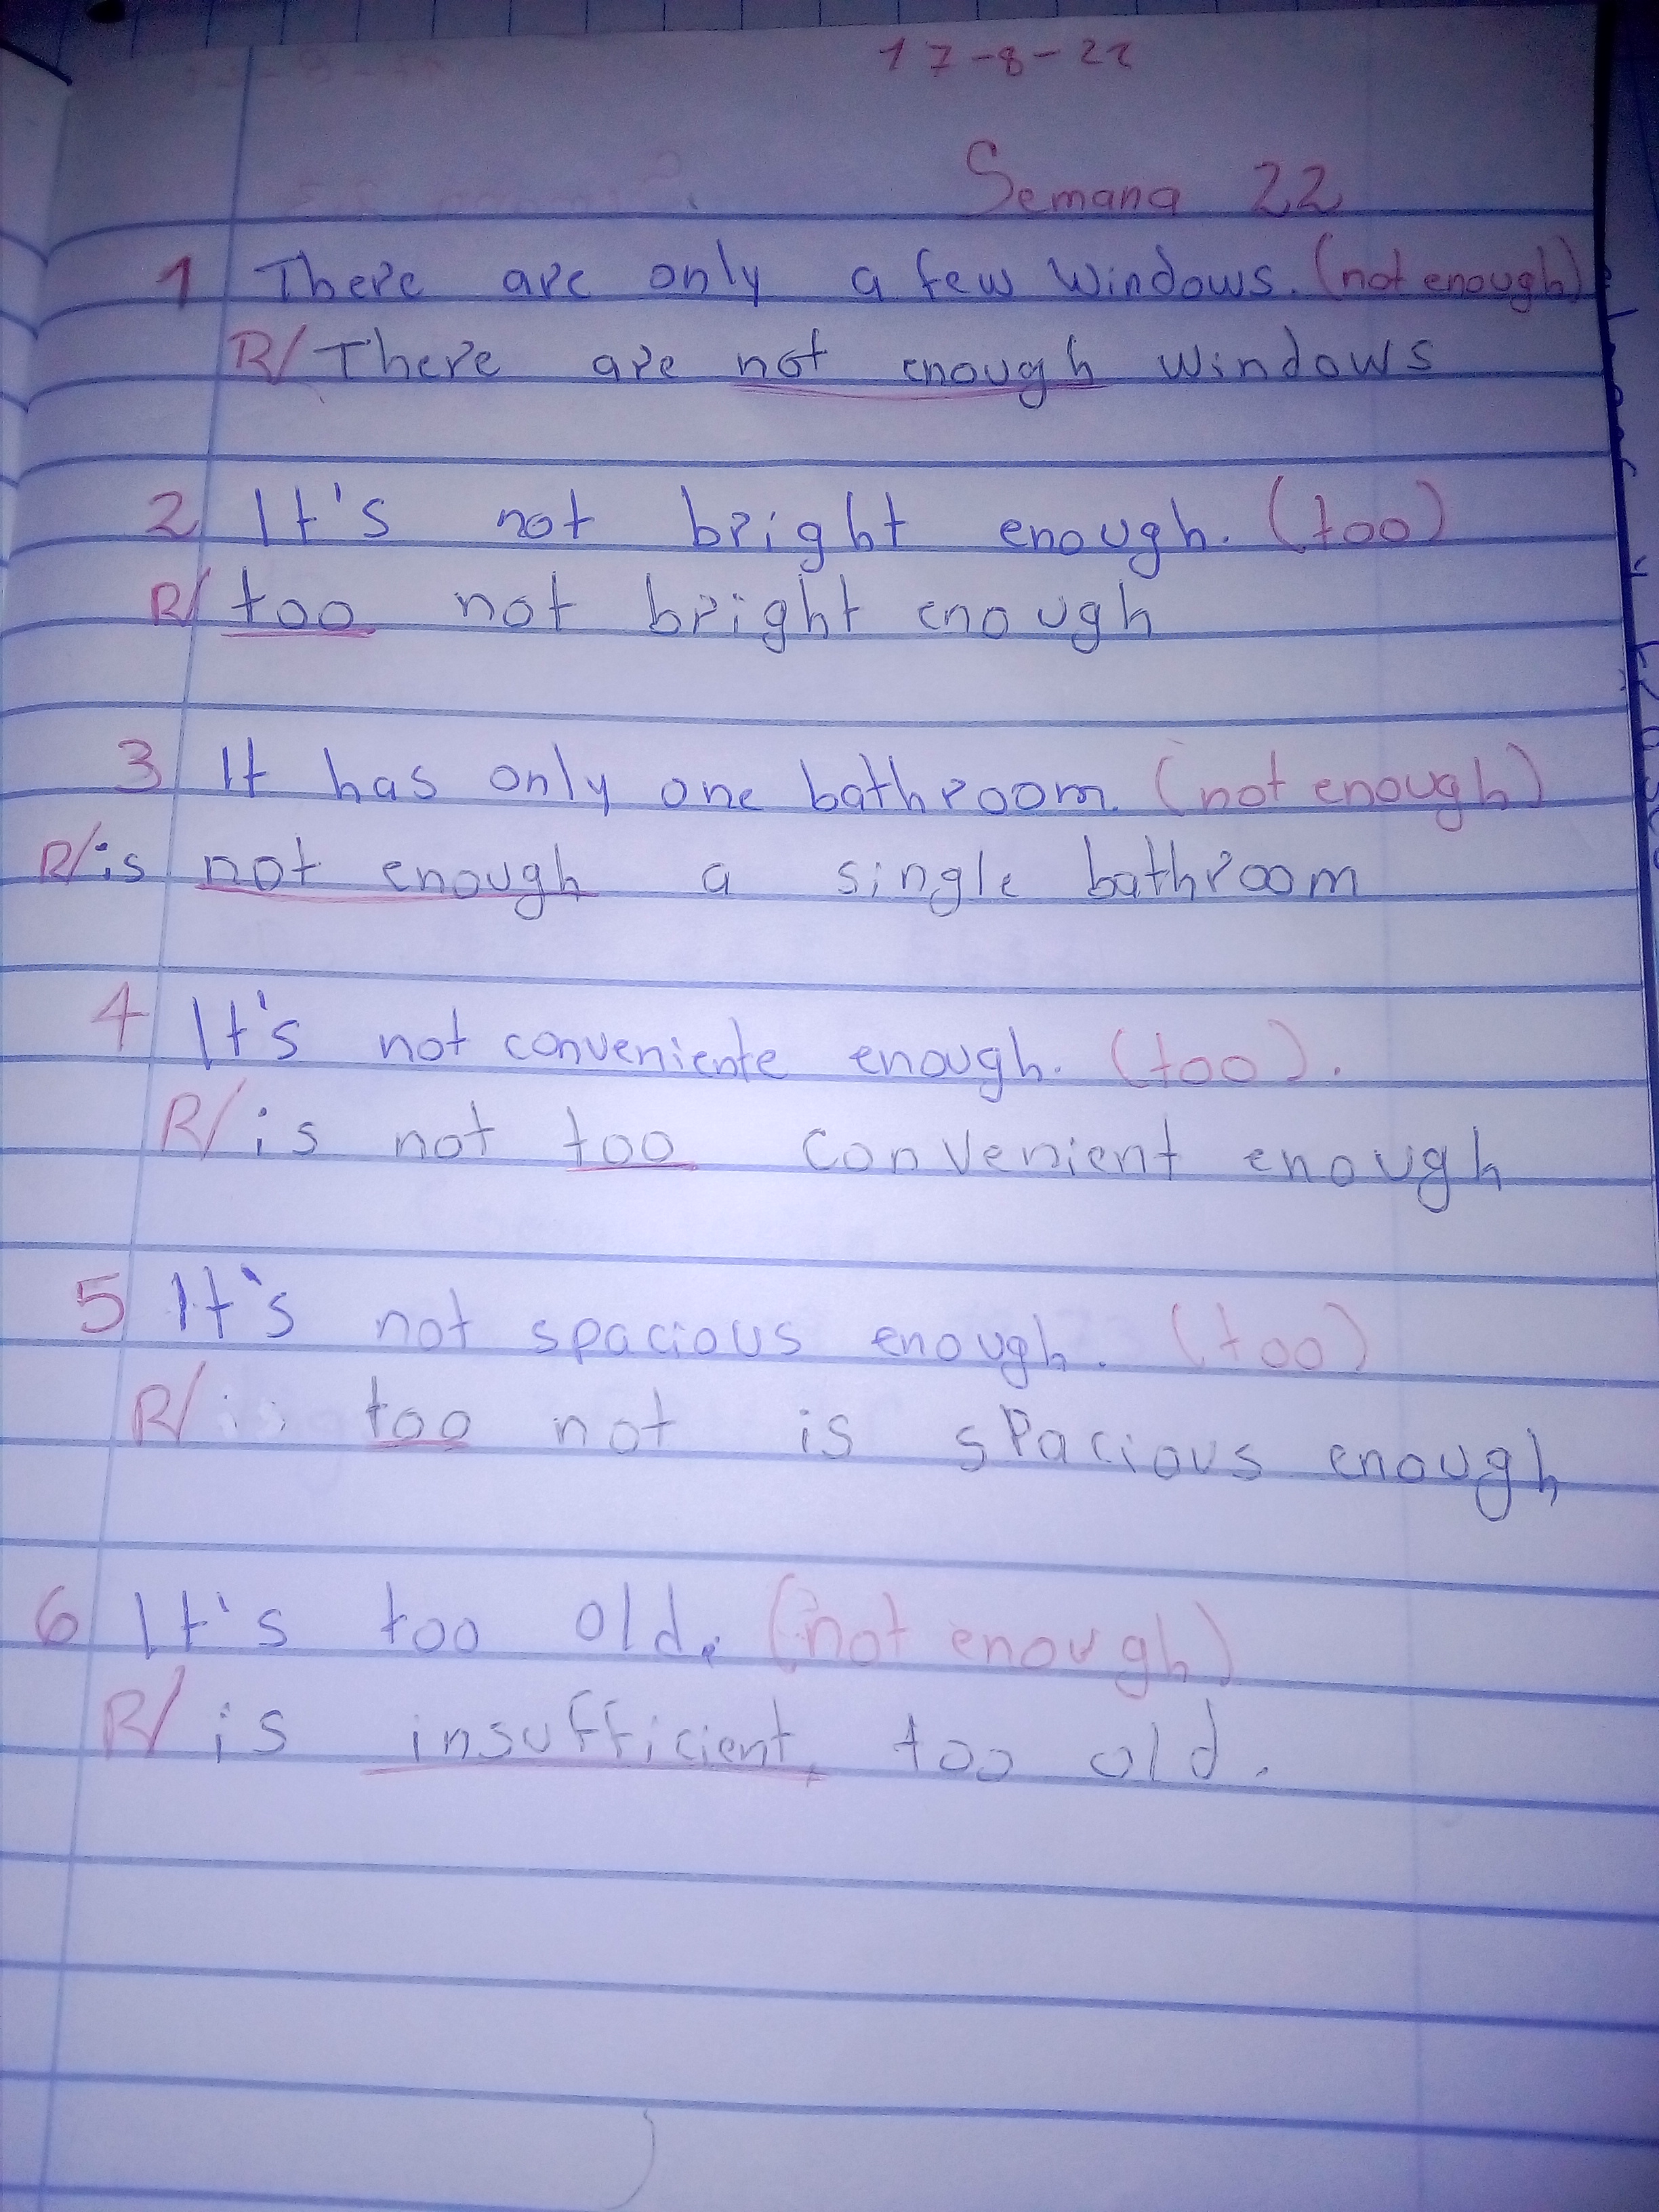 17-8-22
Semana 22
1 There are only a few windows. (not enough)
R/ There are not enough windows
2 It's not bright enough. (too)
R/ too not bright enough
3 It has only one bathroom. (not enough)
R/ is not enough a single bathroom
4 It's not conveniente enough. (too).
R/ is not too convenient enough
5 It's not spacious enough. (too)
R/ is too not is spacious enough
6 It's too old. (not enough)
R/ is insufficient too old.